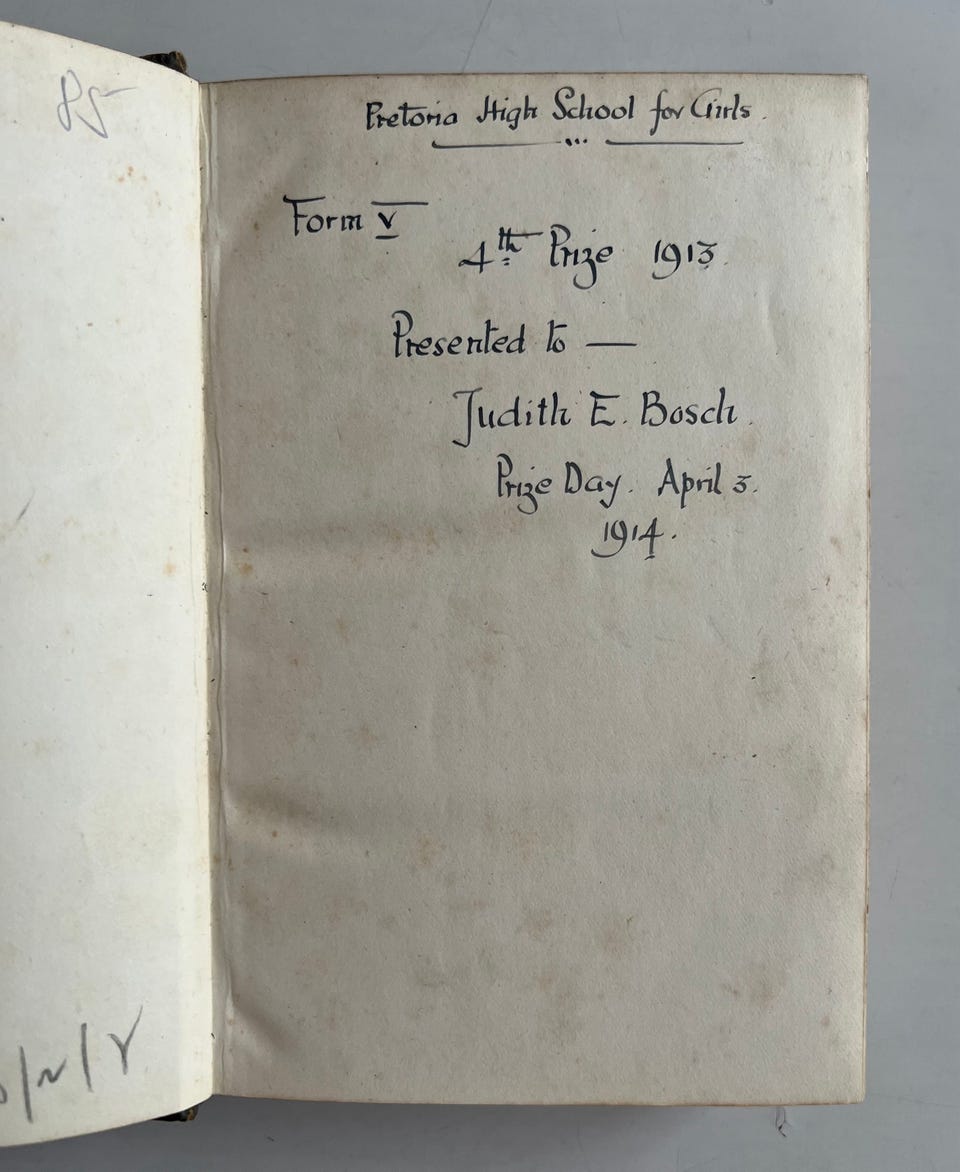 85
Pretoria High School for Girls.
Form V
4th Prize 1913.
Presented to —
Judith E. Bosch.
Prize Day. April 3.
1914.